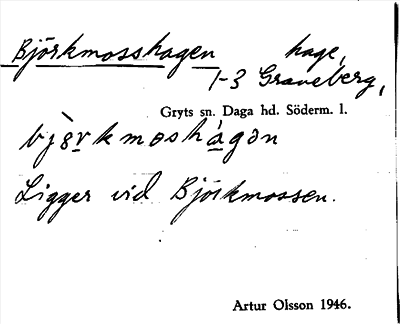 Björkmosshagen hage,
1-3 Graneberg,
Gryts sn. Daga hd. Söderm. l.
bjö̀rkmoshágən
Ligger vid Björkmossen.
Artur Olsson 1946.